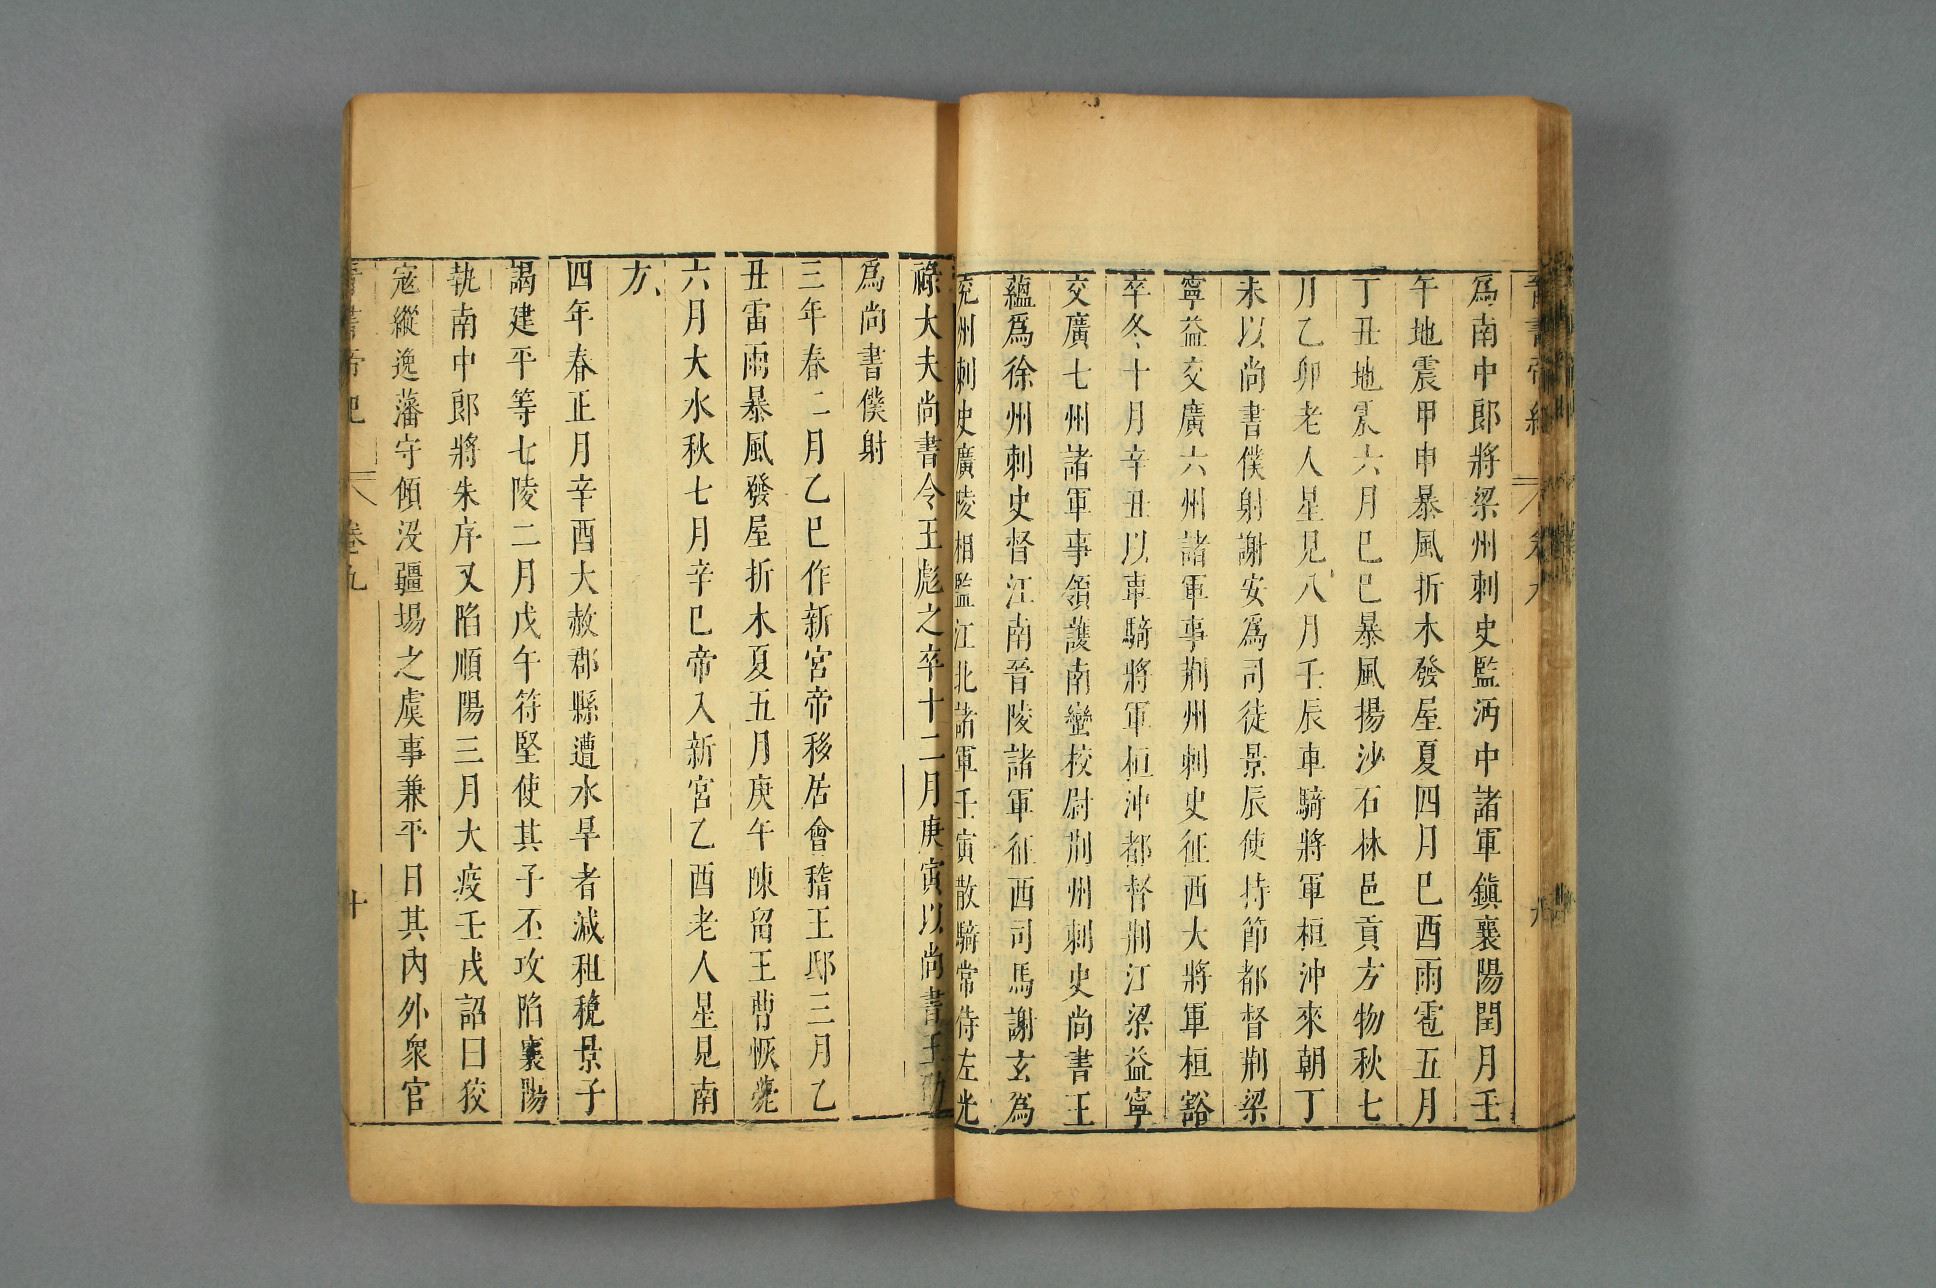 晉書帝紀 卷九 九
爲南中郎將梁州刺史監沔中諸軍鎮襄陽閏月壬
午地震甲申暴風折木發屋夏四月巳酉雨雹五月
丁丑地震六月巳巳暴風揚沙石林邑貢方物秋七
月乙卯老人星見八月壬辰車騎將軍桓沖來朝丁
未以尚書僕射謝安爲司徒景辰使持節都督荆梁
寧益交廣六州諸軍事荆州刺史征西大將軍桓豁
卒冬十月辛丑以車騎將軍桓沖都督荆江梁益寧
交廣七州諸軍事領護南蠻校尉荆州刺史尚書王
蘊爲徐州刺史督江南晉陵諸軍征西司馬謝玄爲
兗州刺史廣陵相監江北諸軍壬寅散騎常侍左光
祿大夫尚書令王彪之卒十二月庚寅以尚書王劭
爲尚書僕射
三年春二月乙巳作新宮帝移居會稽王邸三月乙
丑雷雨暴風發屋折木夏五月庚午陳留王曹恢薨
六月大水秋七月辛巳帝入新宮乙酉老人星見南
方
四年春正月辛酉大赦郡縣遭水旱者減租稅景子
謁建平等七陵二月戊午符堅使其子丕攻陷襄陽
執南中郎將朱序又陷順陽三月大疫壬戌詔曰狡
寇縱逸藩守傾没疆場之虞事兼平日其内外衆官
晉書帝紀 卷九 十